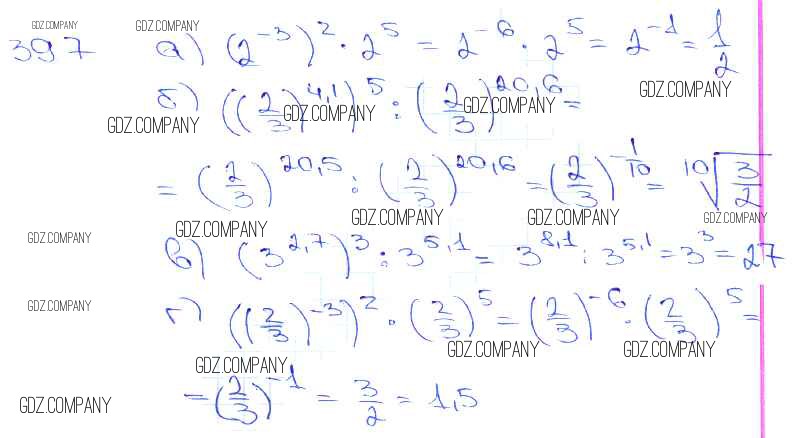 GDZ.COMPANY GDZ.COMPANY
397 а) (2⁻³)² · 2⁵ = 2⁻⁶ · 2⁵ = 2⁻¹ = 1/2
GDZ.COMPANY
б) ((2/3)^4,1)^5 : (2/3)^20,6 =
GDZ.COMPANY GDZ.COMPANY GDZ.COMPANY
= (2/3)^20,5 : (2/3)^20,6 = (2/3)^-1/10 = ¹⁰√(3/2)
GDZ.COMPANY GDZ.COMPANY GDZ.COMPANY GDZ.COMPANY
GDZ.COMPANY
в) (3^2,7)^3 : 3^5,1 = 3^8,1 : 3^5,1 = 3³ = 27
GDZ.COMPANY
г) ((2/3)⁻³)² · (2/3)⁵ = (2/3)⁻⁶ · (2/3)⁵ =
GDZ.COMPANY GDZ.COMPANY GDZ.COMPANY
= (2/3)⁻¹ = 3/2 = 1,5
GDZ.COMPANY